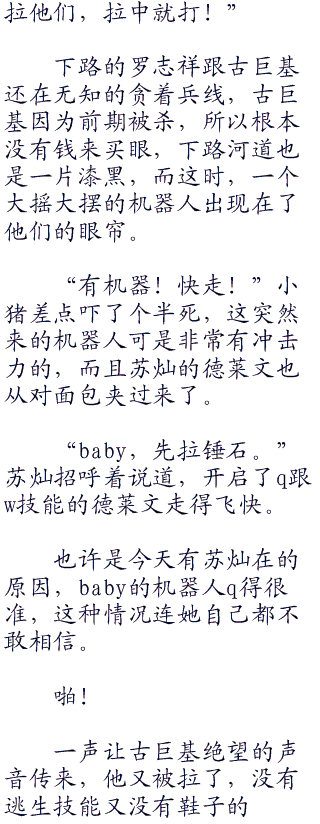 拉他们，拉中就打！”
下路的罗志祥跟古巨基
还在无知的贪着兵线，古巨
基因为前期被杀，所以根本
没有钱来买眼，下路河道也
是一片漆黑，而这时，一个
大摇大摆的机器人出现在了
他们的眼帘。
“有机器！快走！”小
猪差点吓了个半死，这突然
来的机器人可是非常有冲击
力的，而且苏灿的德莱文也
从对面包夹过来了。
“baby，先拉锤石。”
苏灿招呼着说道，开启了q跟
w技能的德莱文走得飞快。
也许是今天有苏灿在的
原因，baby的机器人q得很
准，这种情况连她自己都不
敢相信。
啪！
一声让古巨基绝望的声
音传来，他又被拉了，没有
逃生技能又没有鞋子的